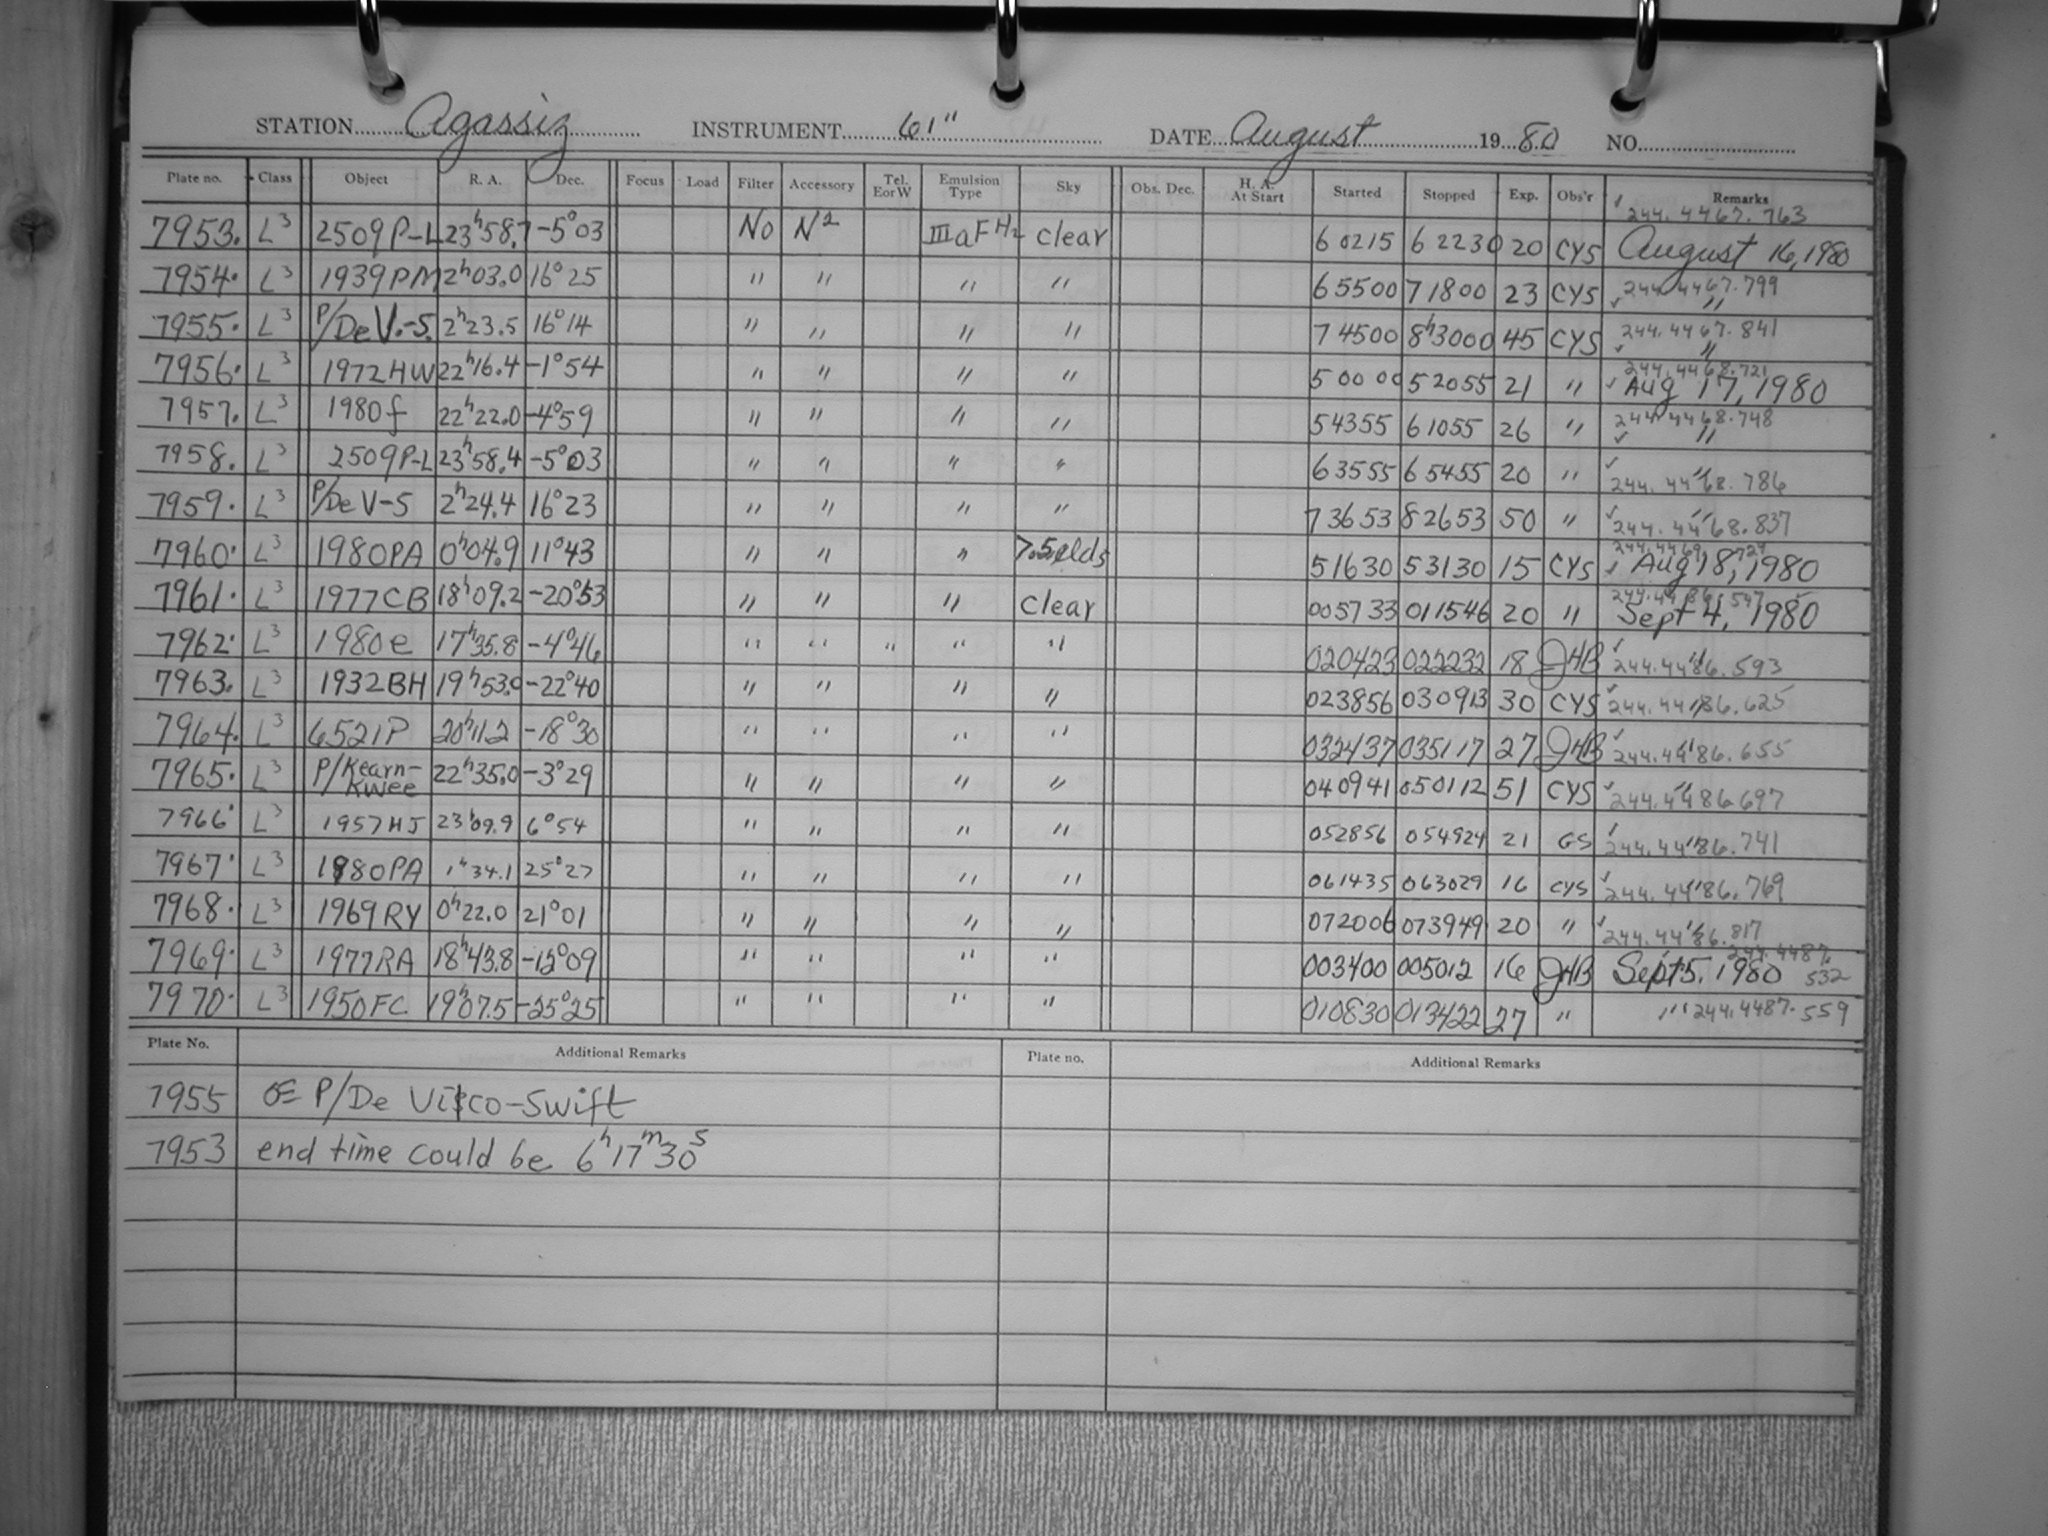 STATION Agassiz INSTRUMENT 61" DATE August 1980 NO.
Plate no. Class Object R. A. Dec. Focus Load Filter Accessory Tel. E or W Emulsion Type Sky Obs. Dec. H. A. At Start Started Stopped Exp. Obs'r Remarks
7953. L3 2509 P-L 23h58.7 -5°03 No N2 IIIaF H2 clear 60215 62230 20 CYS 244.4467.763 August 16, 1980
7954. L3 1939 PM 2h03.0 16°25 " " " " 65500 71800 23 CYS 244.4467.799 "
7955. L3 P/De V.-S. 2h23.5 16°14 " " " " 74500 8h3000 45 CYS 244.4467.841 "
7956. L3 1972 HW 22h16.4 -1°54 " " " " 50000 52055 21 " 244.4468.721 Aug 17, 1980
7957. L3 1980f 22h22.0 -4°59 " " " " 54355 61055 26 " 244.4468.748 "
7958. L3 2509 P-L 23h58.4 -5°03 " " " " 63555 65455 20 " 244.4468.786 "
7959. L3 P/De V-S 2h24.4 16°23 " " " " 73653 82653 50 " 244.4468.837 "
7960. L3 1980PA 0h04.9 11°43 " " " 51630 53130 15 CYS 244.4469.724 Aug 18, 1980
7961. L3 1977CB 18h09.2 -20°53 " " " clear 005733 011546 20 " 244.4486.547 Sept 4, 1980
7962. L3 1980e 17h35.8 -4°46 " " " " " 020423 022232 18 JHB 244.4486.593 "
7963. L3 1932BH 19h53.0 -22°40 " " " " 023856 030913 30 CYS 244.4486.625 "
7964. L3 6521P 20h11.2 -18°30 " " " " 032437 035117 27 JHB 244.4486.655 "
7965. L3 P/Kearn-Kwee 22h35.0 -3°29 " " " " 040941 050112 51 CYS 244.4486.697 "
7966. L3 1957HJ 23h09.9 6°54 " " " " 052856 054924 21 GS 244.4486.741 "
7967. L3 1980PA 1h34.1 25°27 " " " " 061435 063029 16 CYS 244.4486.769 "
7968. L3 1969RY 0h22.0 21°01 " " " " 072006 073949 20 " 244.4486.817 "
7969. L3 1977RA 18h43.8 -12°09 " " " " 003400 005012 16 JHB Sept 5, 1980 244.4487.532
7970. L3 1950FC 19h07.5 -25°25 " " " " 010830 013422 27 " " 244.4487.559
Plate No. Additional Remarks Plate no. Additional Remarks
7955 P/De Vico-Swift
7953 end time could be 6h17m30s